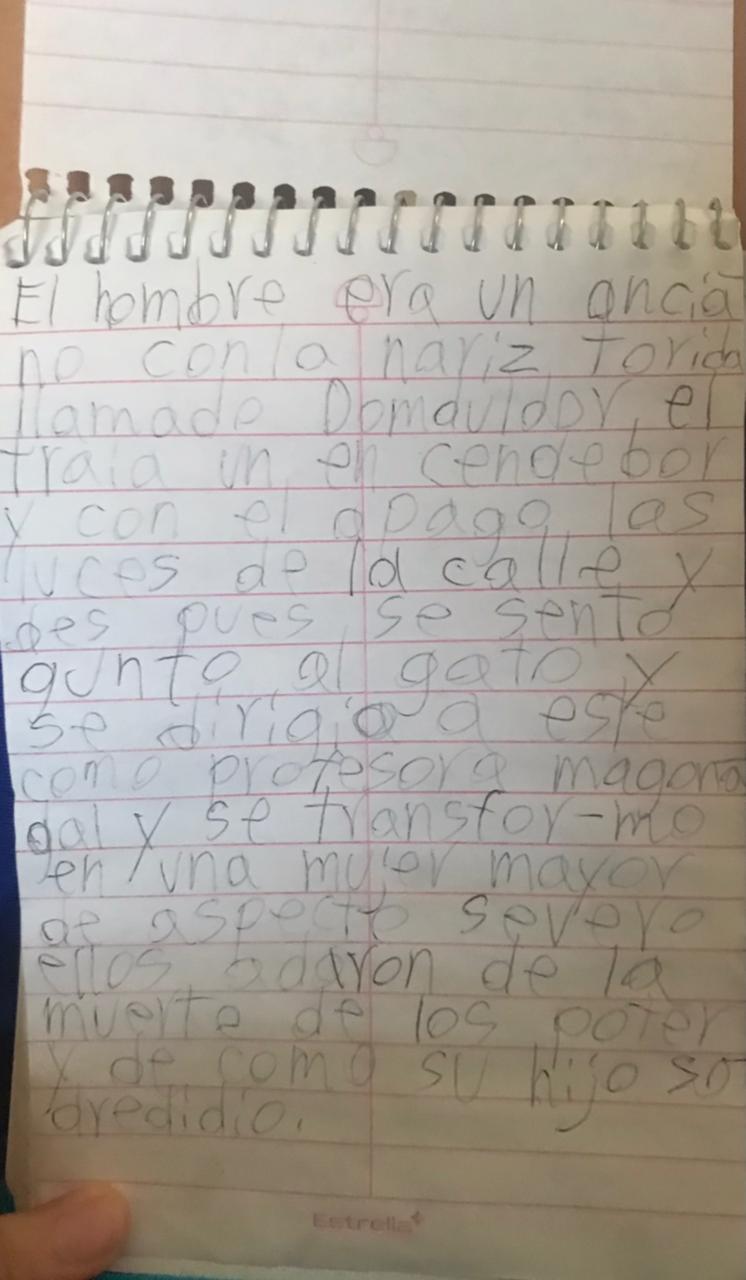 El hombre era un ancia
no con la nariz torida
llamado Domduldor, el
traia un en cendebor
y con el apago las
luces de la calle y
des pues se sento
gunto al gato y
se dirigio a este
como profesora magona
gal y se transfor-mo
en una mujer mayor
de aspecto severo
ellos adaron de la
muerte de los poter
y de como su hijo so
dredidio.
Estrella